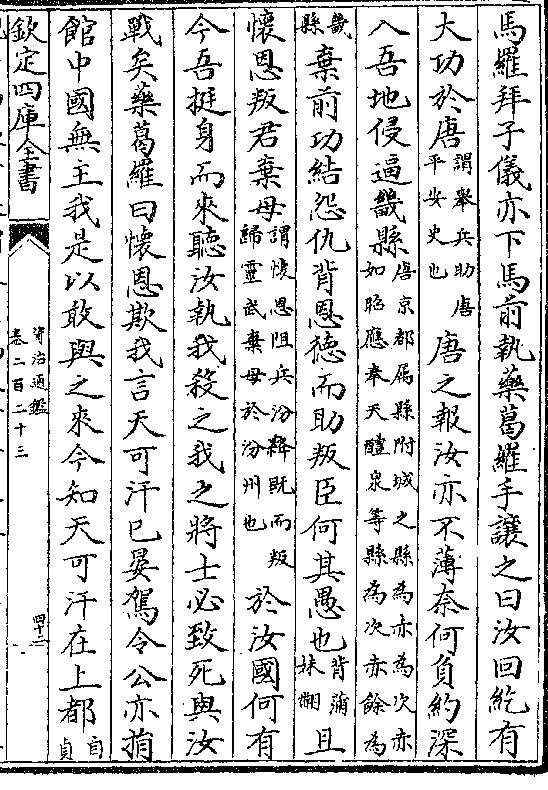 馬羅拜子儀亦下馬前執藥葛羅手讓之曰汝回紇有
大功於唐謂舉兵助唐平安史也唐之報汝亦不薄奈何負約深
入吾地侵逼畿縣唐京都屬縣附城之縣為赤為次赤如昭應奉天醴泉等縣為次赤餘為
畿縣棄前功結怨仇背恩德而助叛臣何其愚也背蒲妹翻且
懷恩叛君棄母謂懷恩阻兵汾絳既而叛歸靈武棄母於汾州也於汝國何有
今吾挺身而來聽汝執我殺之我之將士必致死與汝
戰矣藥葛羅曰懷恩欺我言天可汗已晏駕令公亦捐
館中國無主我是以敢與之來今知天可汗在上都自貞
欽定四庫全書
資治通鑑
卷二百二十三
四十二